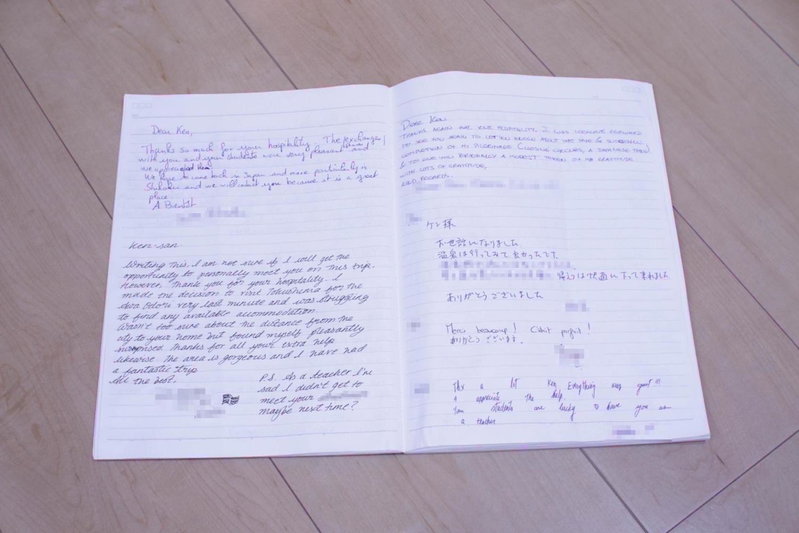 Dear Ken,
Thanks so much for your hospitality. The exchanges
with you and your students were very pleasant and
we appreciated
We hope to come back in Japan and more particularly in
Shikoku and we will contact you because it is a great
place.
A. Bientôt
Ken-san
Writing this, I am not sure if I will get the
opportunity to personally meet you on this trip.
However, Thank you for your hospitality. I
made the decision to visit Tokushima for the
Awa Odori very last minute and was struggling
to find any available accommodation.
Wasn't too sure about the distance from the
city to your home but found myself pleasantly
surprised. Thanks for all your extra help
likewise. The area is gorgeous and I have had
a fantastic trip
All the best,
P.S As a teacher I'm
sad I didn't get to
meet your
maybe next time?
Dear Ken
THANKS AGAIN FOR YOUR HOSPITALITY. I WAS LOOKING FORWARD
COMPLETION OF MY PILGRIMAGE
WITH LOTS OF GRATITUDE,
ケン様
お世話になりました
温泉は行ってみて良かったです。
ありがとうございました
Merci beaucoup! C'était parfait!
ありがとうございます。
Thx a lot Ken, Everything was great!!
I appreciate the help.
students are lucky to have you as
a teacher